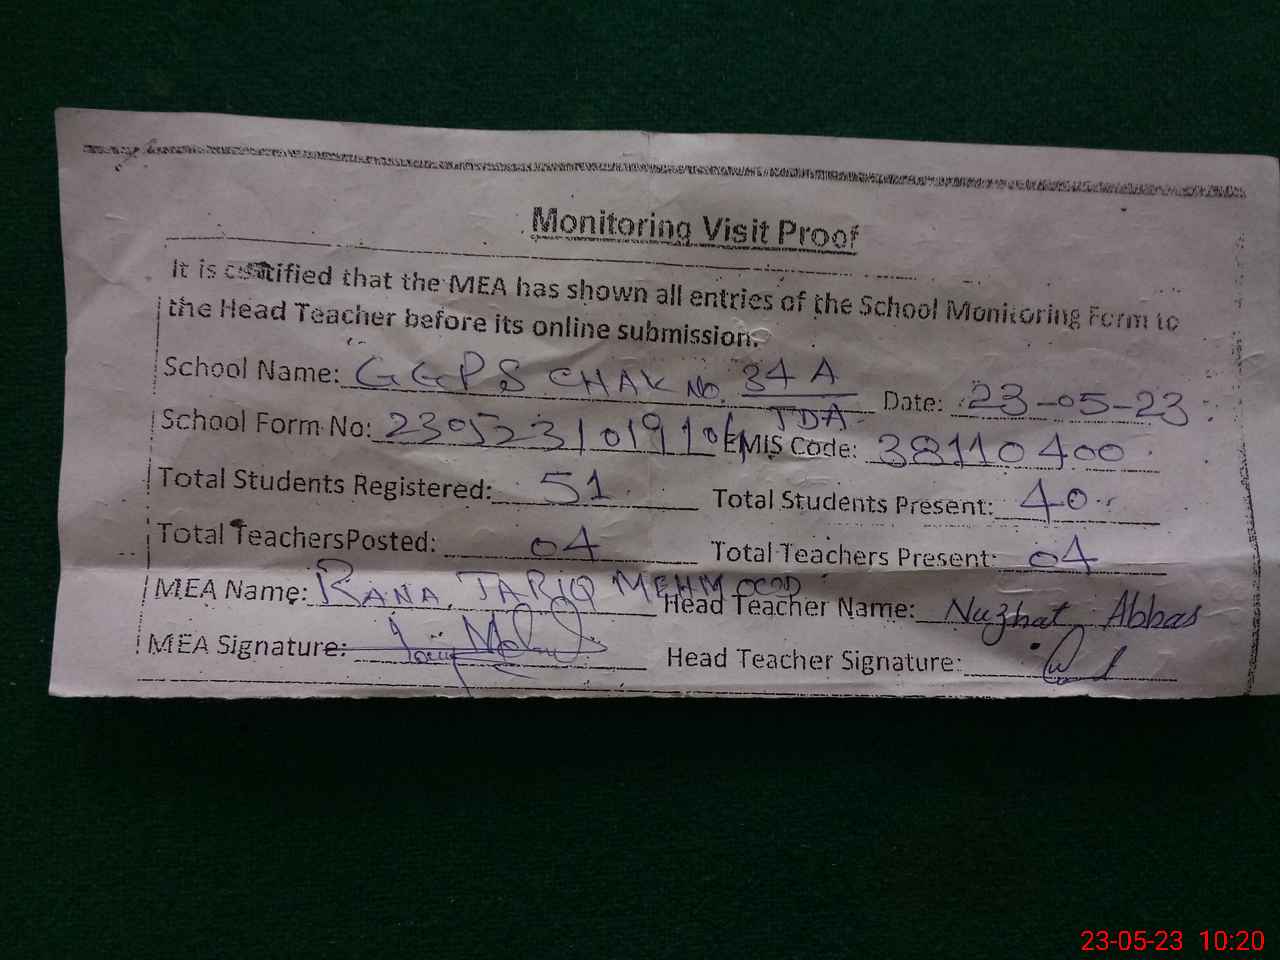 Monitoring Visit Proof
It is certified that the MEA has shown all entries of the School Monitoring Form to
the Head Teacher before its online submission.
School Name: GGPS CHAK NO. 34 A/TDA Date: 23-05-23
School Form No: EMIS Code: 38110400
Total Students Registered: 51 Total Students Present: 40
Total TeachersPosted: 04 Total Teachers Present: 04
MEA Name: RANA TARIQ MEHMOOD Head Teacher Name: Nuzhat Abbas
MEA Signature: Head Teacher Signature:
23-05-23 10:20